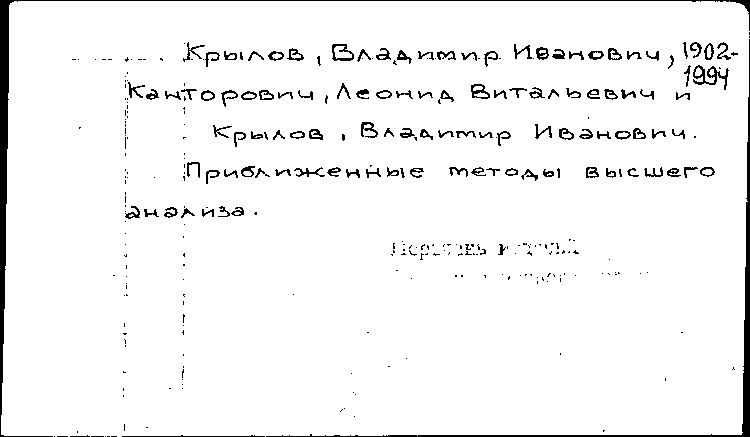 Крылов, Владимир Иванович, 1902-
1994
Канторович, Леонид Витальевич и
Крылов, Владимир Иванович.
Приближенные методы высшего
анализа.